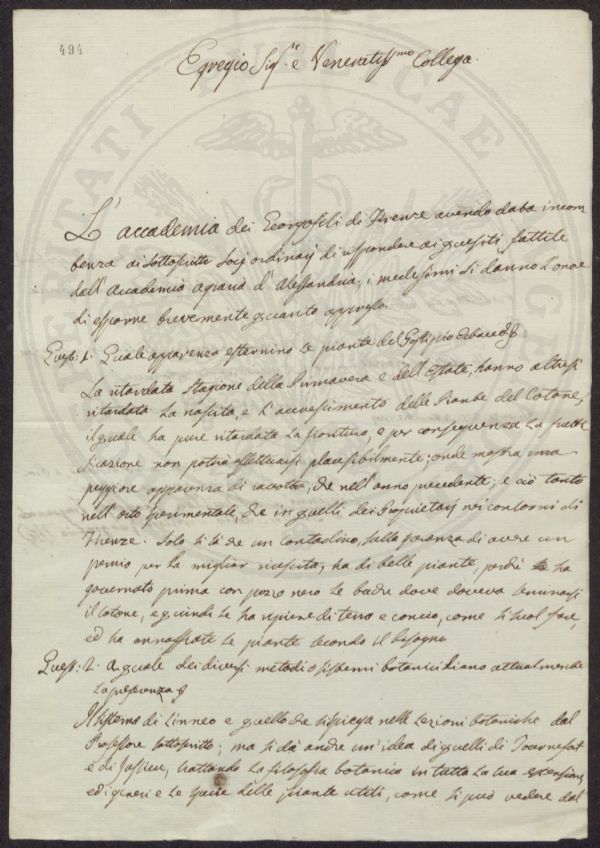 494
Egregio Sig.re e Veneratiss.mo Collega.
L'accademia dei Georgofili di Firenze avendo data incom
benza ai sottoscritti Socj ordinarj di rispondere ai quesiti fattile
dall'Accademia agraria d'Alessandria, i medesimi si danno l'onore
di esporne brevemente quanto appresso.
Quest: 1. Quale apparenza esternino le piante del Gossipio erbaceo?
La ritardata stagione della Primavera e dell'Estate, hanno altresì
ritardata la nascita, e l'accrescimento delle Piante del Cotone,
il quale ha pure ritardata la fioritura, e per conseguenza la frutti
ficazione non potrà effettuarsi plausibilmente; onde mostra una
peggiore apparenza di raccolta, che nell'anno precedente; e ciò tanto
nell'orto sperimentale, che in quelli dei Proprietarj nei contorni di
Firenze. Solo si sà che un Contadino, sulla speranza di avere un
premio per la miglior riuscita, ha di belle piante, perchè ha
governato prima con pozzo nero le buche dove doveva seminarsi
il cotone, e quindi le ha ripiene di terra e concio, come si suol fare,
ed ha annaffiate le piante secondo il bisogno.
Quest: 2. A quale dei diversi metodi o sistemi botanici diano attualmente
la preferenza?
Il sistema di Linneo e quello che si spiega nelle Lezioni botaniche dal
Professore sottoscritto; ma si dà anche un'idea di quelli di Tournefort
e di Jussieu, trattando la filosofia botanica in tutta la sua estensione,
ed i generi e le specie delle piante utili, come si può vedere dal